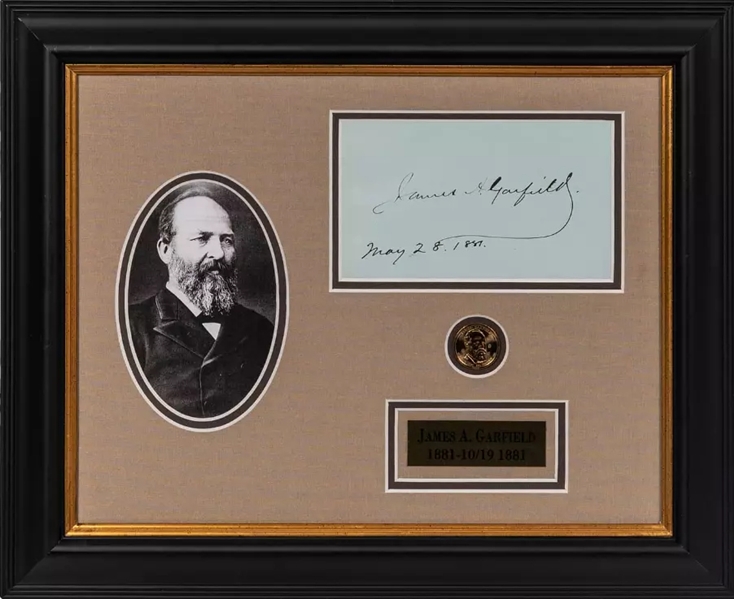 James A Garfield.
May 28. 1881.
JAMES A. GARFIELD
1881-10/19 1881